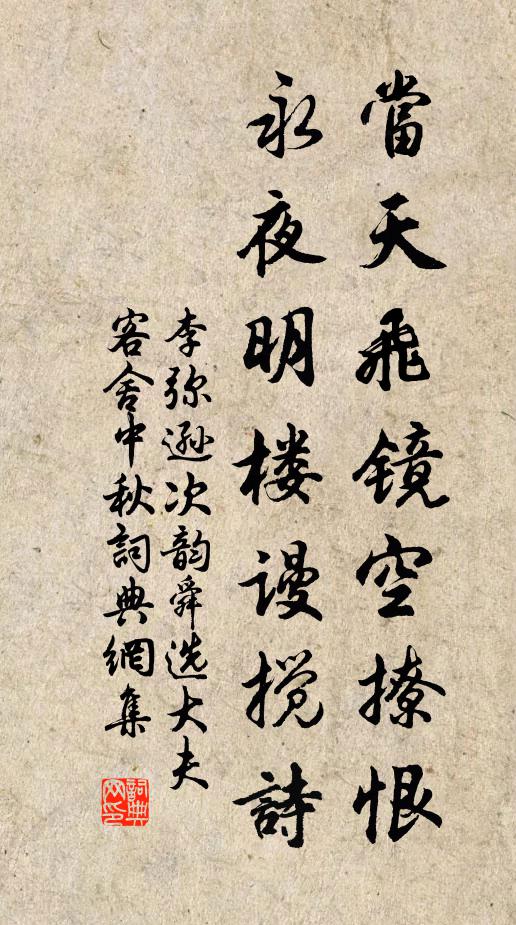 當天飛镜空撩恨
永夜明楼谩搅詩
李弥遜次韵舜选大夫
客舍中秋詞典網集
詞典网印